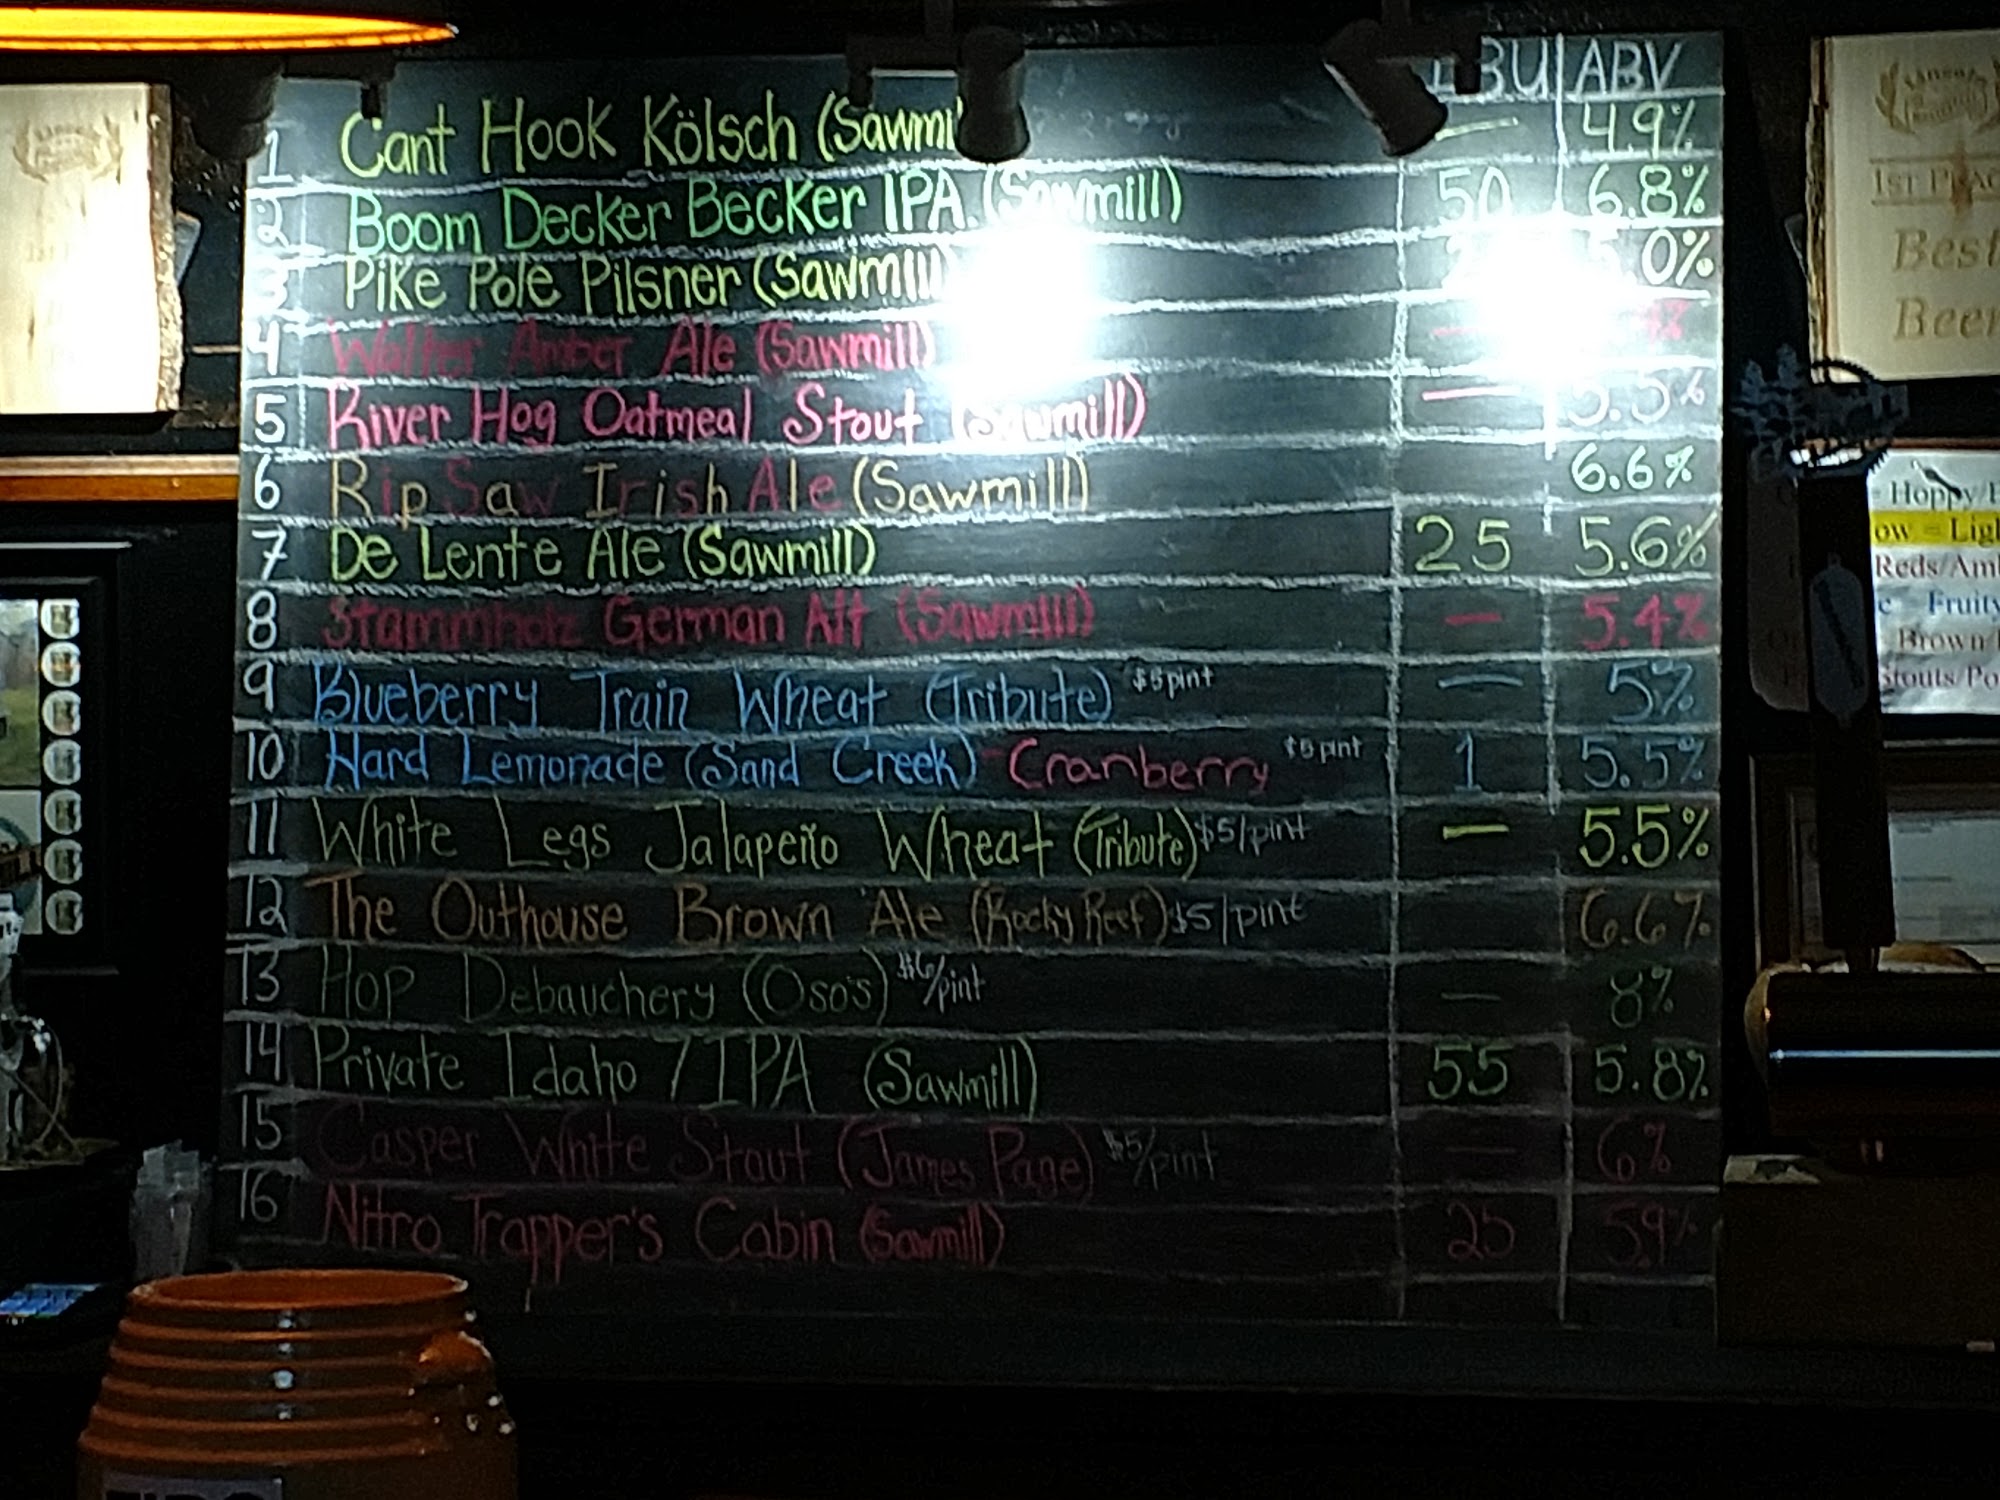 IBU ABV
1 Cant Hook Kölsch (Sawmi — 4.9%
2 Boom Decker Becker IPA (Sawmill) 50 6.8%
3 Pike Pole Pilsner (Sawmill .0%
4 Walter Amber Ale (Sawmill) —
5 River Hog Oatmeal Stout (Sawmill) — 5.5%
6 Rip Saw Irish Ale (Sawmill) 6.6%
7 De Lente Ale (Sawmill) 25 5.6%
8 Stammholz German Alt (Sawmill) — 5.4%
9 Blueberry Train Wheat (Tribute) $5 pint — 5%
10 Hard Lemonade (Sand Creek) - Cranberry $5 pint 1 5.5%
11 White Legs Jalapeño Wheat (Tribute) $5/pint — 5.5%
12 The Outhouse Brown Ale (Rocky Reef) $5/pint 6.6%
13 Hop Debauchery (Oso's) $6/pint — 8%
14 Private Idaho / IPA (Sawmill) 55 5.8%
15 Casper White Stout (James Page) $5/pint — 6%
16 Nitro Trapper's Cabin (Sawmill) 25 5.9%
1st Plac
Best
Beer
= Hoppy/
ow = Ligh
Reds/Amb
Fruity
Brown/
Stouts/Po